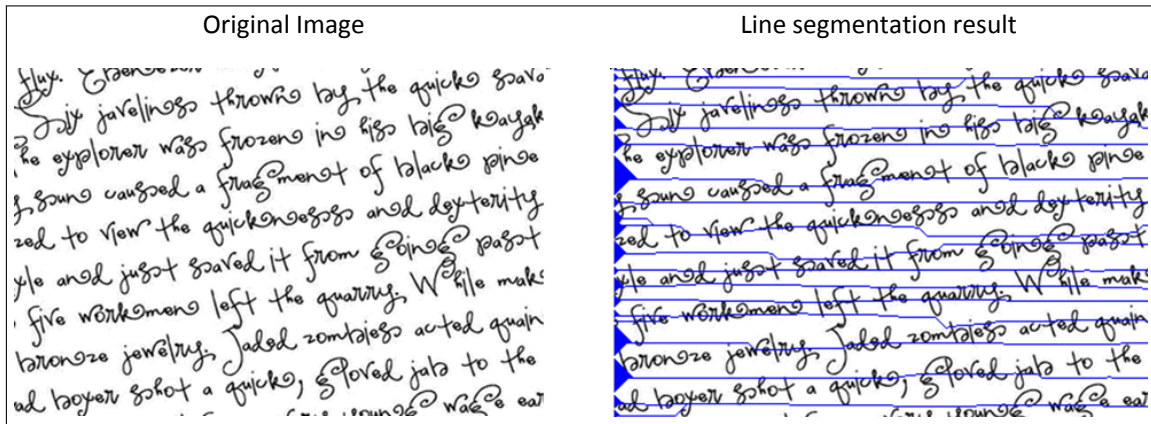 Original Image
flux.
Six javelins thrown by the quick sava
he explorer was frozen in his big kayak
caused a fragment of black pine
zed to view the quickness and dexterity
yle and just saved it from going past
five workmen left the quarry. While mak
bronze jewelry. Jaded zombies acted quain
ad boxer shot a quick, gloved jab to the
wage ear
Line segmentation result
flux.
Six javelins thrown by the quick sava
he explorer was frozen in his big kayak
caused a fragment of black pine
zed to view the quickness and dexterity
yle and just saved it from going past
five workmen left the quarry. While mak
bronze jewelry. Jaded zombies acted quain
ad boxer shot a quick, gloved jab to the
wage ear